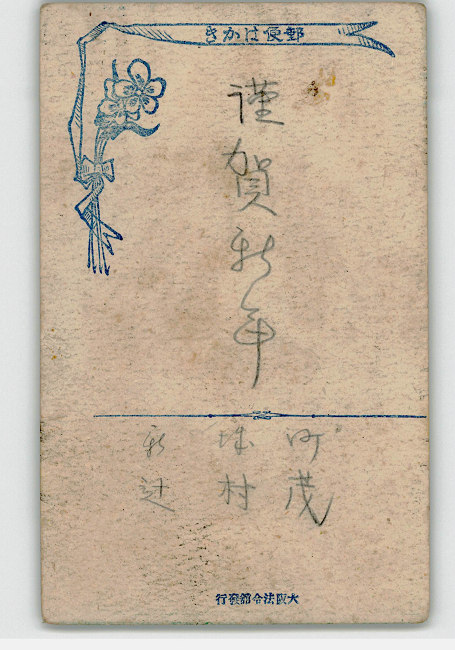 郵便はかき
謹賀新年
町茂
村
新辻
大阪法令館發行